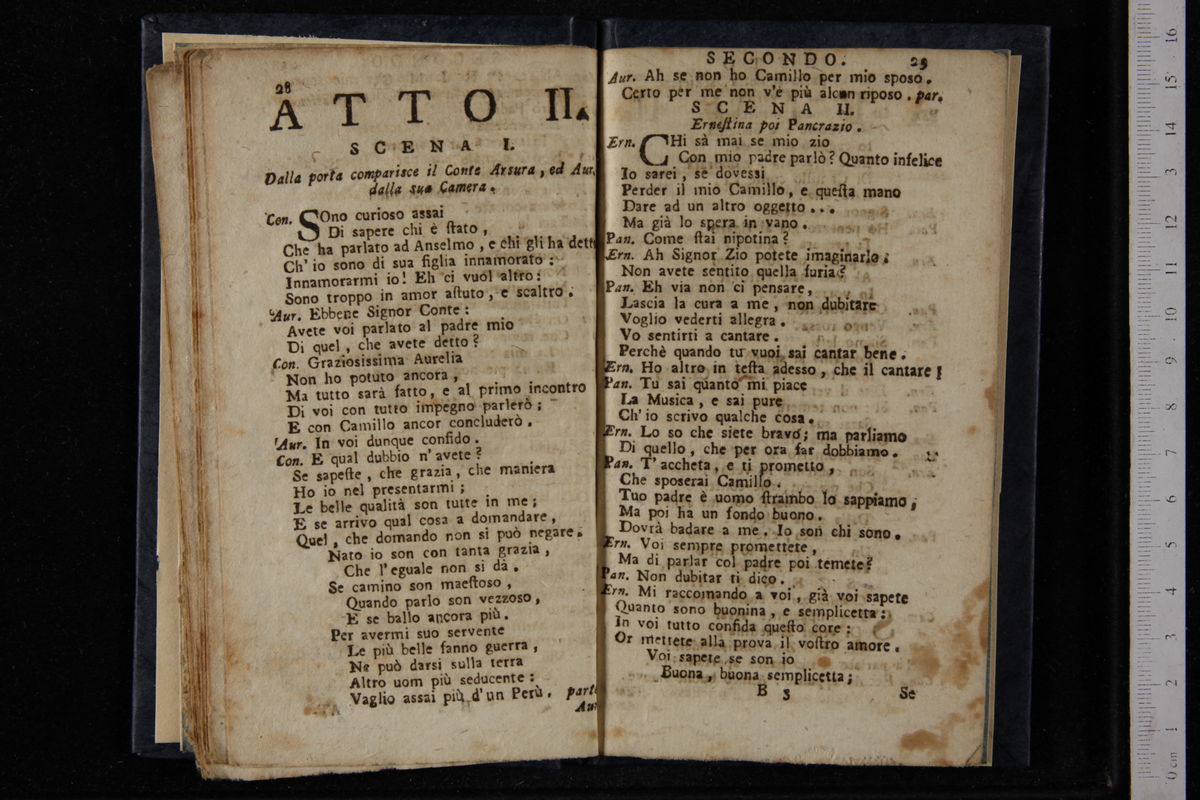 28
ATTO II.
SCENA I.
Dalla porta comparisce il Conte Arsura, ed Aur.
dalla sua Camera.
Con. SOno curioso assai
Di sapere chi è ſtato,
Che ha parlato ad Anselmo, e chi gli ha dett
Ch' io sono di sua figlia innamorato:
Innamorarmi io! Eh ci vuol altro:
Sono troppo in amor aſtuto, e scaltro.
Aur. Ebbene Signor Conte:
Avete voi parlato al padre mio
Di quel, che avete detto?
Con. Graziosissima Aurelia
Non ho potuto ancora,
Ma tutto sarà fatto, e al primo incontro
Di voi con tutto impegno parlerò;
E con Camillo ancor concluderò.
Aur. In voi dunque confido.
Con. E qual dubbio n' avete?
Se sapeſte, che grazia, che maniera
Ho io nel presentarmi;
Le belle qualità son tutte in me;
E se arrivo qual cosa a domandare,
Quel, che domando non si può negare.
Nato io son con tanta grazia,
Che l' eguale non si dà.
Se camino son maeſtoso,
Quando parlo son vezzoso,
E se ballo ancora più.
Per avermi suo servente
Le più belle fanno guerra,
Ne può darsi sulla terra
Altro uom più seducente:
Vaglio assai più d' un Perù. part
Aur
SECONDO. 29
Aur. Ah se non ho Camillo per mio sposo.
Certo per me non v'è più alcun riposo. par.
SCENA II.
Erneſtina poi Pancrazio.
Ern. CHi sà mai se mio zio
Con mio padre parlò? Quanto infelice
Io sarei, se dovessi
Perder il mio Camillo, e queſta mano
Dare ad un altro oggetto...
Ma già lo spera in vano.
Pan. Come ſtai nipotina?
Ern. Ah Signor Zio potete imaginarlo:
Non avete sentito quella furia?
Pan. Eh via non ci pensare,
Lascia la cura a me, non dubitare
Voglio vederti allegra.
Vo sentirti a cantare.
Perchè quando tu vuoi sai cantar bene.
Ern. Ho altro in teſta adesso, che il cantare!
Pan. Tu sai quanto mi piace
La Musica, e sai pure
Ch' io scrivo qualche cosa.
Ern. Lo so che siete bravo; ma parliamo
Di quello, che per ora far dobbiamo.
Pan. T' accheta, e ti prometto,
Che sposerai Camillo.
Tuo padre è uomo ſtrambo lo sappiamo;
Ma poi ha un fondo buono.
Dovrà badare a me. Io son chi sono.
Ern. Voi sempre promettete,
Ma di parlar col padre poi temete?
Pan. Non dubitar ti dico.
Ern. Mi raccomando a voi, già voi sapete
Quanto sono buonina, e semplicetta:
In voi tutto confida queſto core:
Or mettete alla prova il voſtro amore.
Voi sapete se son io
Buona, buona semplicetta;
B 3 Se
16
15
14
13
12
11
10
9
8
7
6
5
4
3
2
1
0 cm